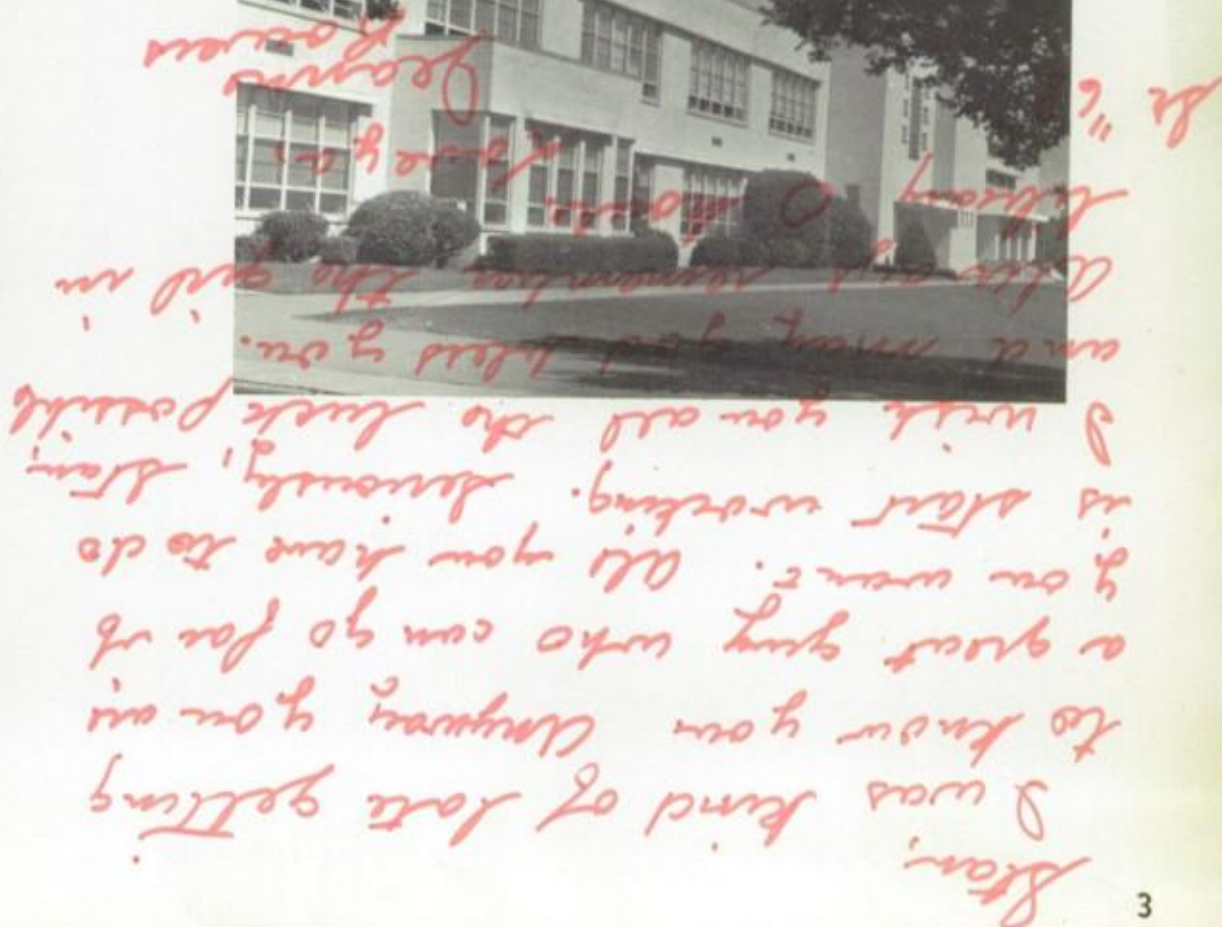 Stan,
I was kind of late getting
to know you Anyway, you are
a great guy who can go far if
you want. All you have to do
is start working. Seriously, Stan,
I wish you all the luck possible
and may god bless you.
remember the girl in
library
Love ya,
Powers
3